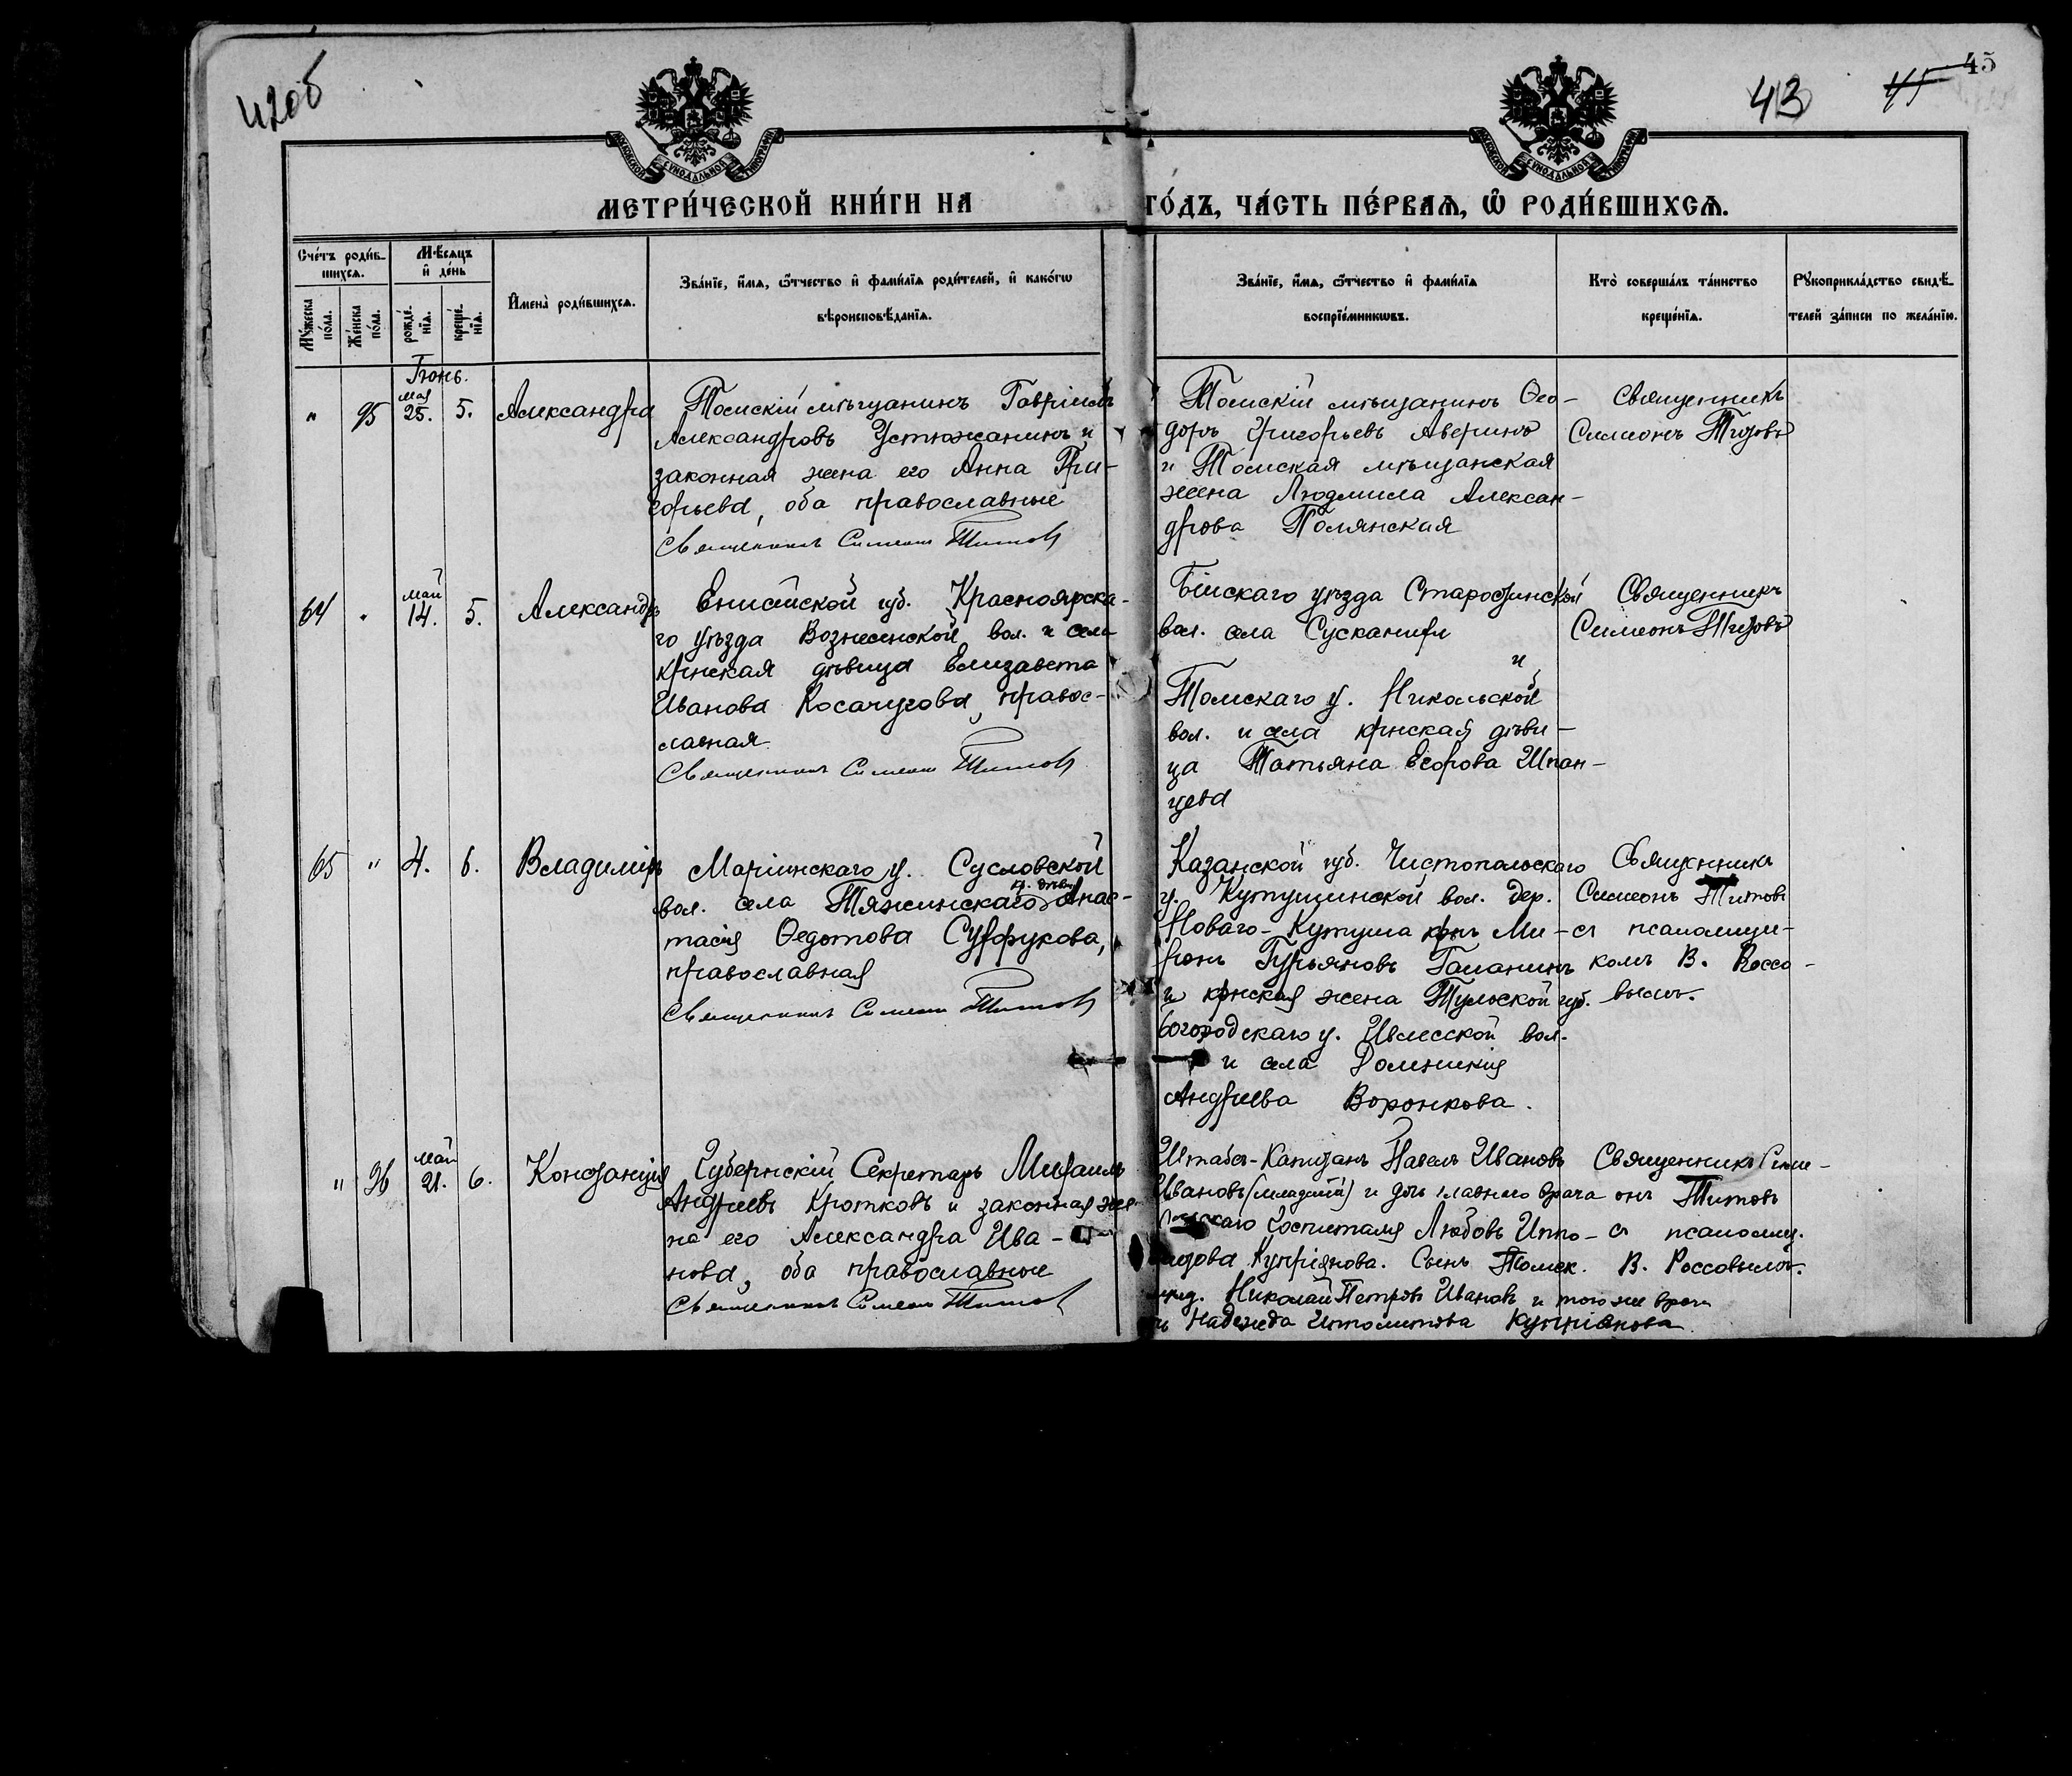 42об
43
45
45
МОСКОВСКОЙ СѴНОДАЛЬНОЙ ТИПОГРАФІИ
МОСКОВСКОЙ СѴНОДАЛЬНОЙ ТИПОГРАФІИ
МЕТРИ́ЧЕСКОЙ КНИ́ГИ НА
ГО́ДЪ, ЧА́СТЬ ПЕ́РВАѦ, Ѡ РОДИ́ВШИХСѦ.
Сче́тъ роди́в-
шихсѧ.
Мѣ́сѧцъ
и҆ де́нь
Мꙋ́жеска
по́ла.
Же́нска
по́ла.
рожде́-
нїѧ.
креще́-
нїѧ.
И҆мена̀ роди́вшихсѧ.
Зва́нїе, и҆́мѧ, ѻ҆́тчество и҆ фами́лїѧ роди́телей, и҆ како́гѡ
вѣроисповѣ́данїѧ.
Зва́нїе, и҆́мѧ, ѻ҆́тчество и҆ фами́лїѧ
воспрїе́мникѡвъ.
Кто̀ соверша́лъ та́инство
креще́нїѧ.
Рꙋкоприкла́дство свидѣ́-
телей за́писи по жела́нїю.
Іюнь.
" 95 мая 25. 5. Александра
Томскій мѣщанинъ Гавріилъ
Александровъ Устюжанинъ и
законная жена его Анна Гри-
горьева, оба православные
Священникъ Симеонъ Титовъ
Томскій мѣщанинъ Ѳео-
доръ Григорьевъ Аверинъ
и Томская мѣщанская
жена Людмила Алексан-
дрова Полянская
Священникъ
Симеонъ Титовъ
64 " май 14. 5. Александръ
Енисейской губ. Красноярска-
го уѣзда Вознесенской вол. и села
крнская дѣвица Елизавета
Иванова Косачугова, правос-
лавная
Священникъ Симеонъ Титовъ
Бійскаго уѣзда
вол. села
и
Томскаго у. Никольской
вол. и села крнская дѣви-
ца Татьяна Егорова Шпан-
цева
Священникъ
Симеонъ Титовъ
65 " 4. 6. Владиміръ
Маріинскаго у. Сусловской
кр. дѣв.
вол. села Тяжинскаго Анас-
тасія Ѳедотова
православная
Священникъ Симеонъ Титовъ
Казанской губ. Чистопольскаго
у. Кутушинской вол. дер.
Новаго-Кутуша крнъ Ми-
ронъ Гурьяновъ Гаманинъ
и крнская жена Тульской губ.
Богородскаго у. вол.
и села Домникія
Андреева Воронкова.
Священникъ
Симеонъ Титовъ
съ псаломщи-
комъ В. Россо-
вымъ.
" 96 май 21. 6. Констанція
Губернскій Секретарь Михаилъ
Андреевъ Кротковъ и законная же-
на его Александра Ива-
нова, оба православные
Священникъ Симеонъ Титовъ
Штабсъ-Капитанъ Павелъ Ивановъ
Ивановъ (младшій) и дочь главнаго врача
госпиталя Любовь Иппо-
литова Купріянова. Сынъ Томск.
Николай Петровъ Ивановъ и того же врача
Надежда Ипполитова Купріянова
Священникъ Симе-
онъ Титовъ
съ псаломщ.
В. Россовымъ.